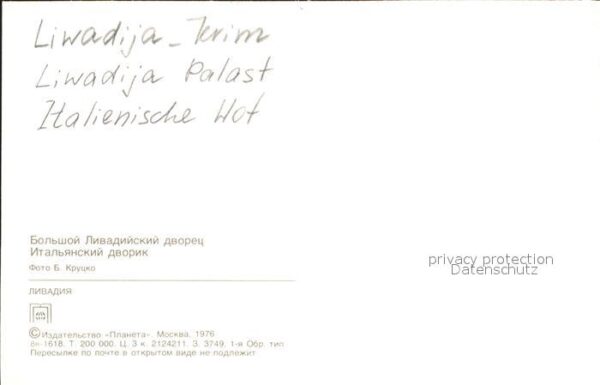 Liwadija - Krim
Liwadija Palast
Italienische Hof
Большой Ливадийский дворец
Итальянский дворик
Фото Б. Круцко
privacy protection
Datenschutz
ЛИВАДИЯ
© Издательство «Планета». Москва, 1976
8н-1618. Т. 200 000. Ц. 3 к. 2124211. З. 3749. 1-я Обр. тип
Пересылке по почте в открытом виде не подлежит